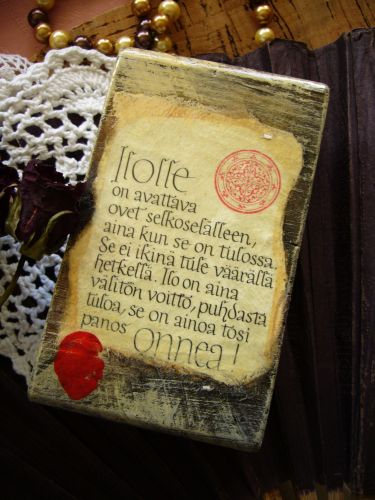 Ilolle
on avattava
ovet selkoselälleen,
aina kun se on tulossa.
Se ei ikinä tule väärällä
hetkellä. Ilo on aina
välitön voitto, puhdasta
tuloa, se on ainoa tosi
panos onnea!